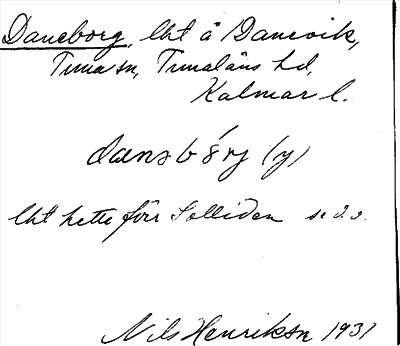 Daneborg, lht å Danevik,
Tuna sn, Tunaläns hd,
Kalmar l.
lht hette förr Solliden se d.o.
Nils Henrikson 1931